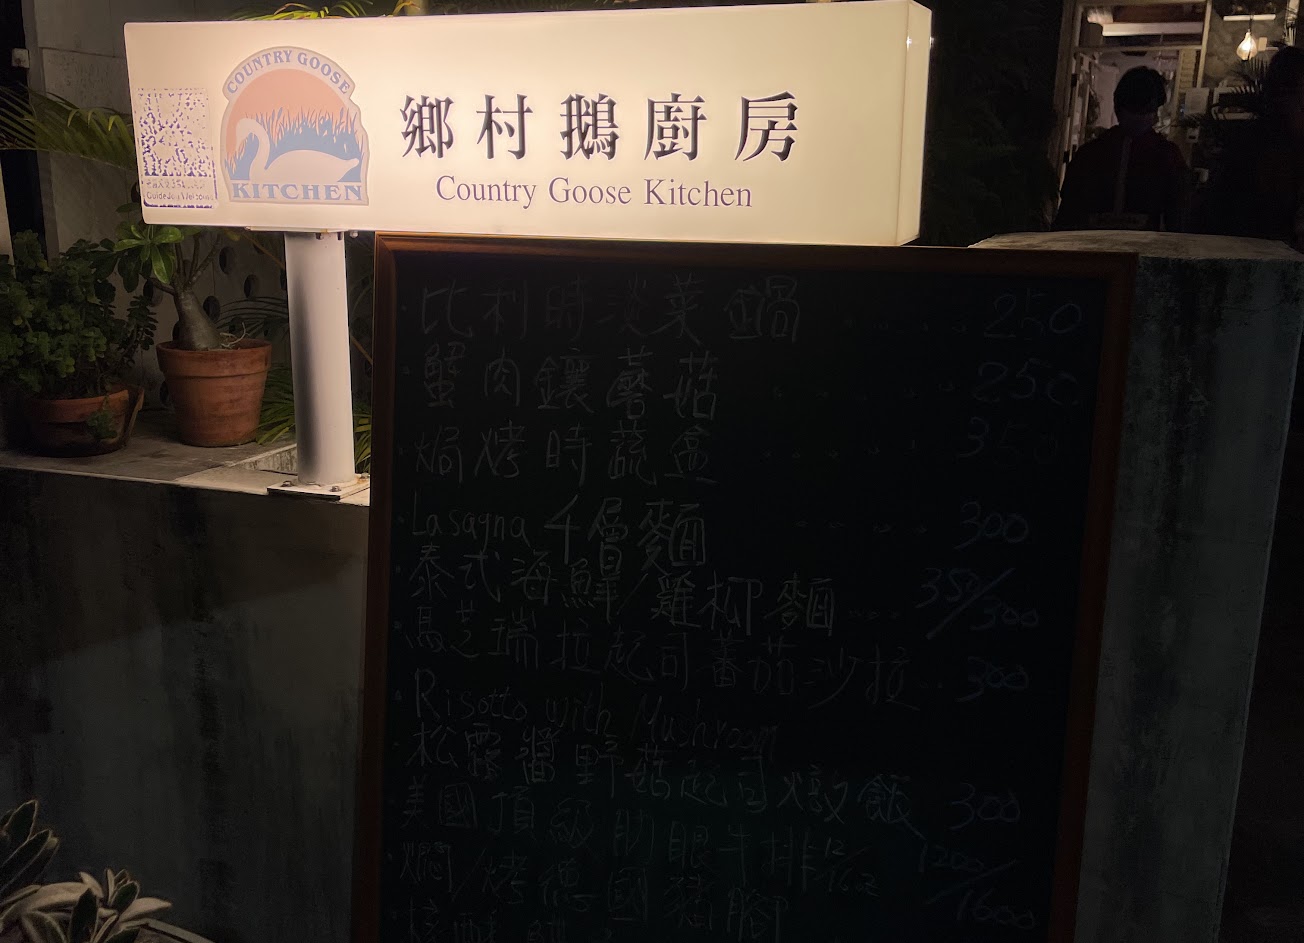 COUNTRY GOOSE
KITCHEN
鄉村鵝廚房
Country Goose Kitchen
比利時淡菜鍋 250
蟹肉鑲蘑菇 250
焗烤時蔬盒 350
Lasagna 千層麵 300
泰式海鮮/雞柳麵 350/300
馬芝瑞拉起司蕃茄沙拉 300
Risotto with Mushroom
松露醬野菇起司燉飯 300
美國頂級肋眼牛排12oz 1200/1600
燜/烤德國豬腳